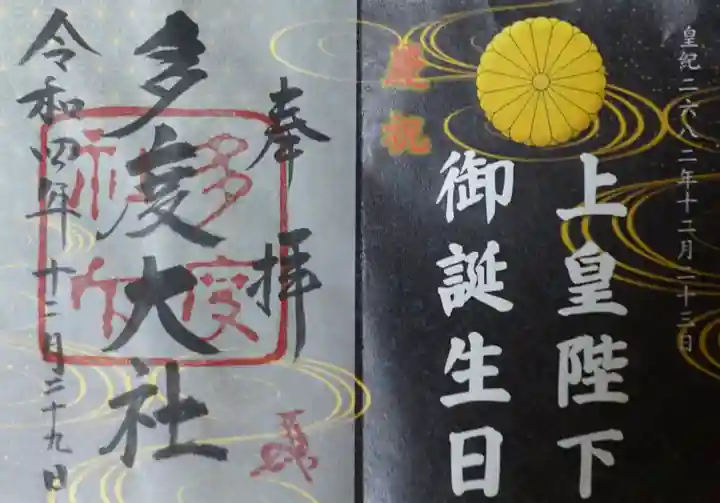 皇紀二六八二年十二月二十三日
上皇陛下
御誕生日
慶祝
奉拝
多度大社
令和四年十二月二十九日
多度